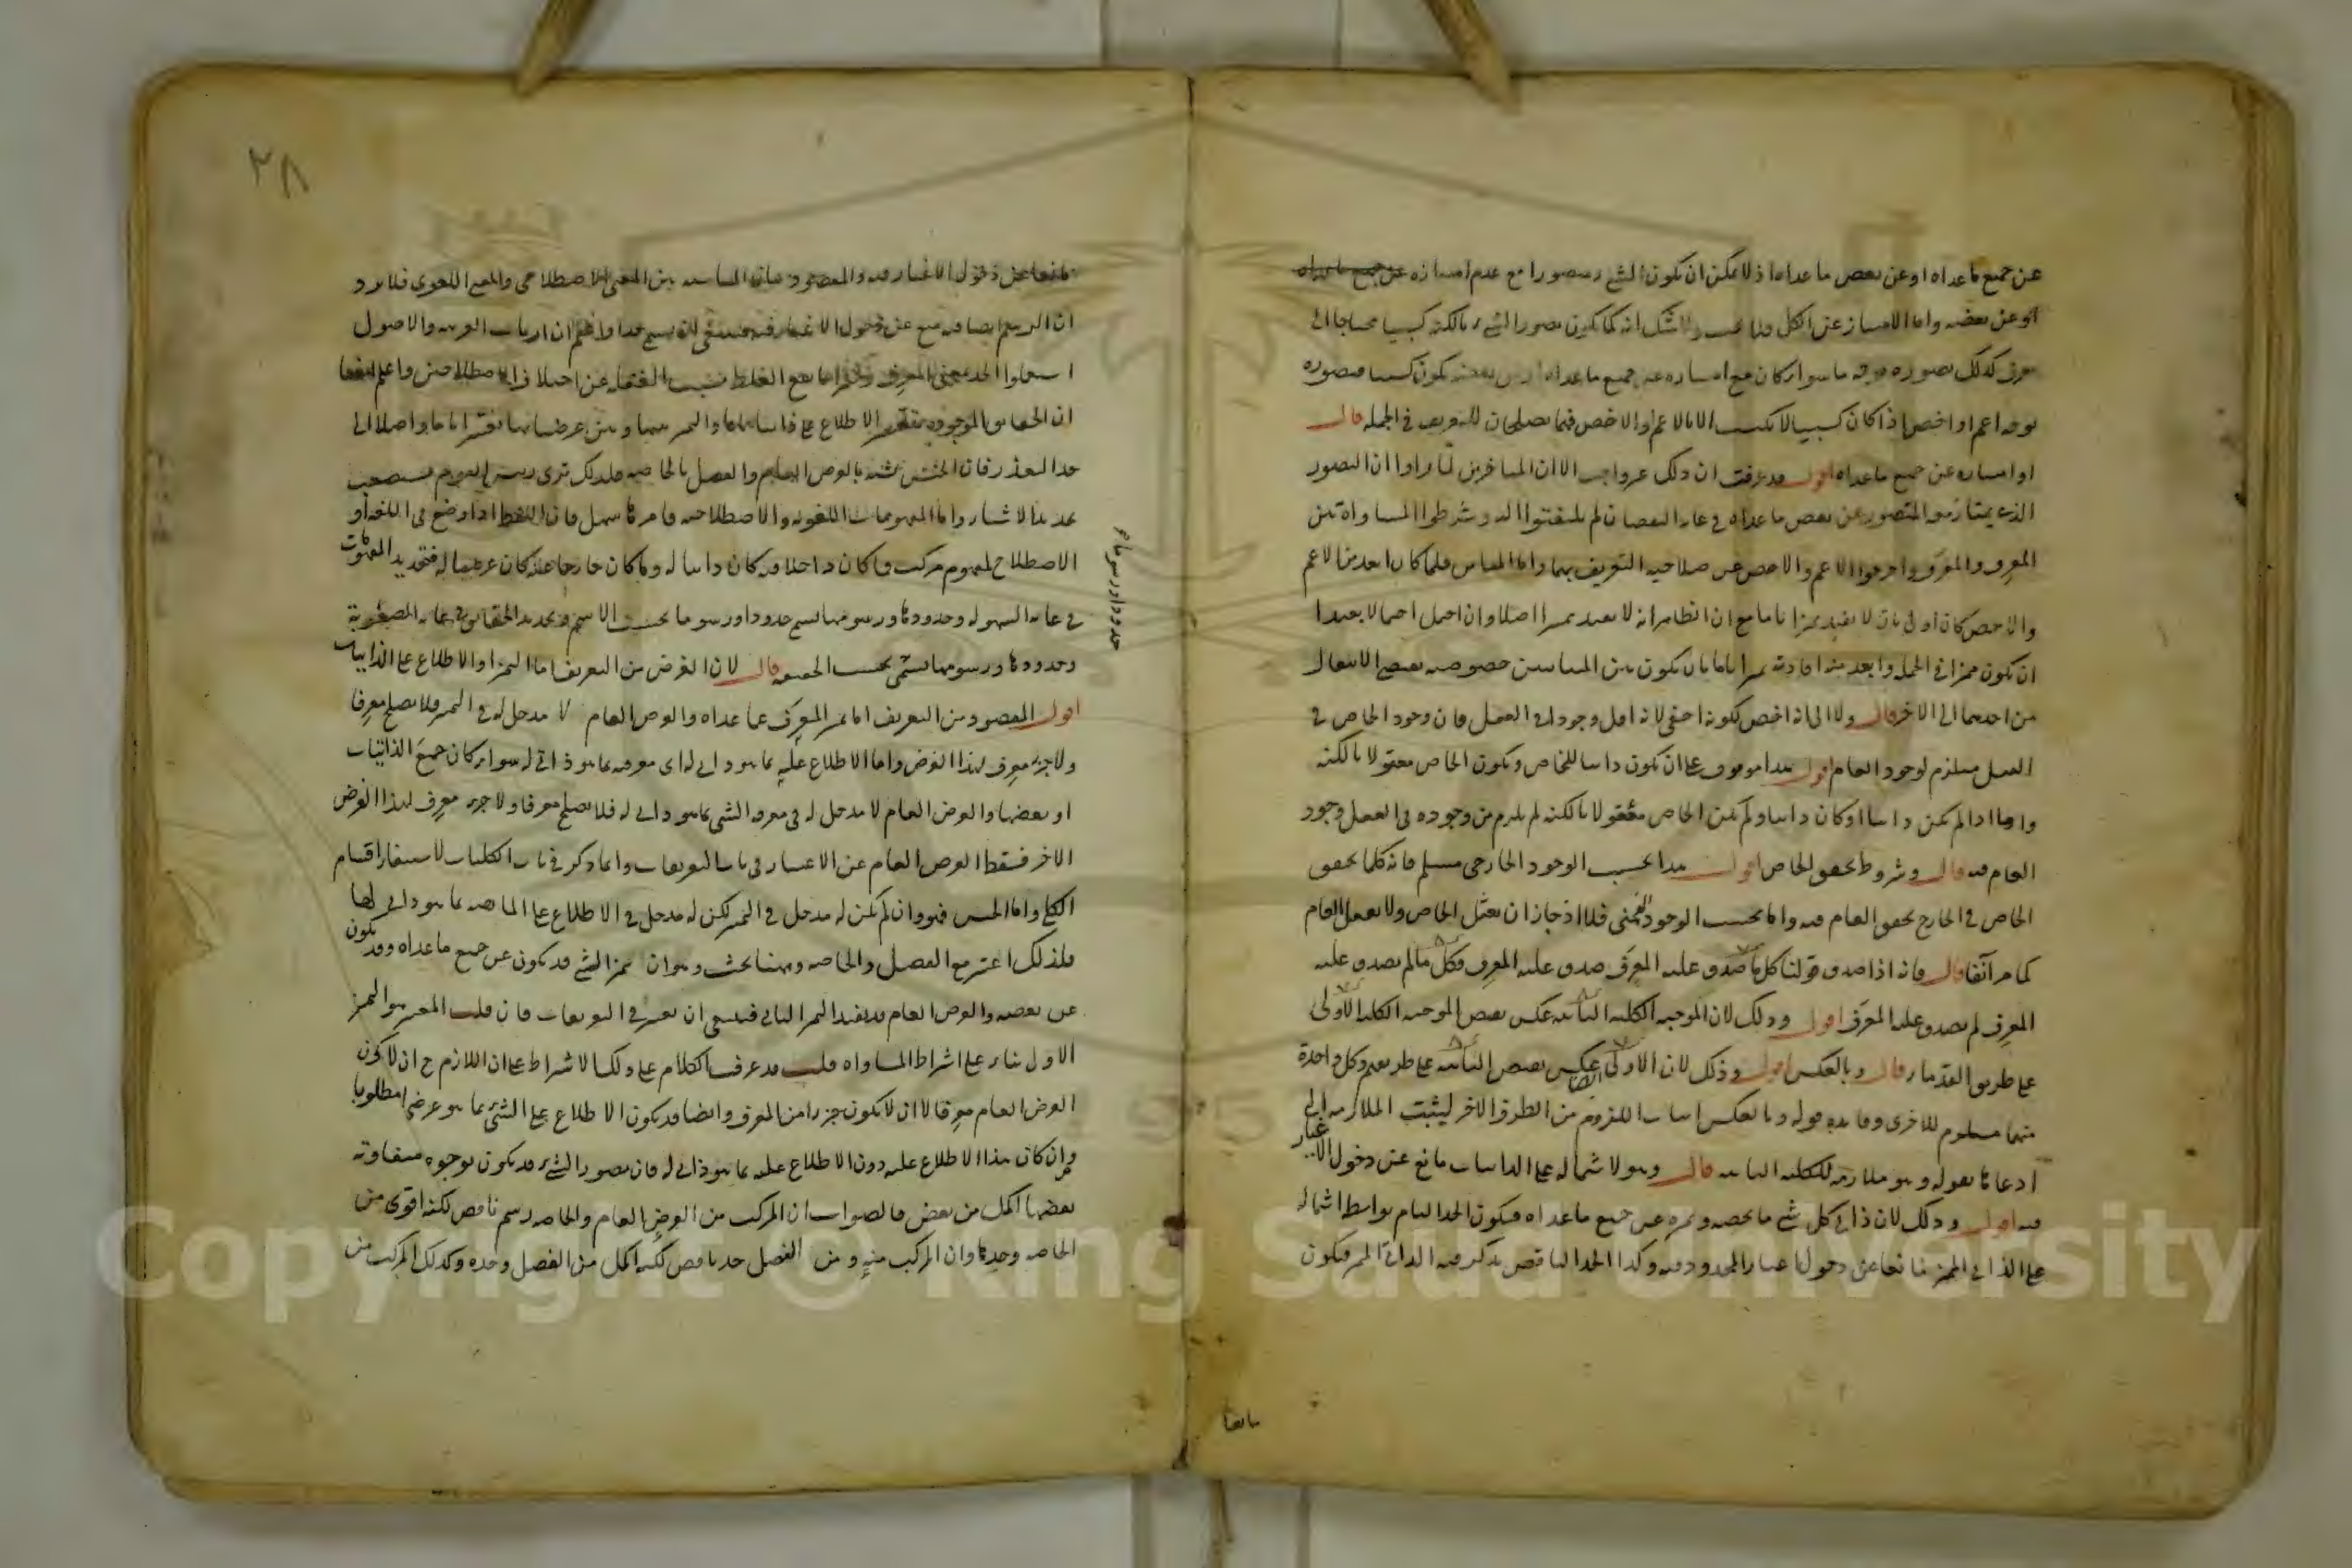 عن جميع ما عداه او عن بعض ما عداه اذ لا يمكن ان يكون الشيء متصورا مع عدم امتيازه عن جميع ما عداه
او عن بعضه واما الامتياز عن الكل فلا يجب ولا شك انه كما يكون تصور الشيء بالكنه كسبيا محتاجا الى
معرف كذلك تصوره بوجه ما سواء كان مع امتيازه عن جميع ما عداه او عن بعضه يكون كسبيا فتصوره
بوجه اعم او اخص اذا كان كسبيا لا يكتسب الا بالاعم والاخص فهما يصلحان للتعريف في الجملة قال
او امتيازه عن جميع ما عداه اقول قد عرفت ان ذلك غير واجب الا ان المتاخرين لما راوا ان التصور
الذي يمتاز معه المتصور عن بعض ما عداه في غاية النقصان لم يلتفتوا اليه وشرطوا المساواة بين
المعرف والمعرف واخرجوا الاعم والاخص عن صلاحية التعريف بهما واما المباين فلما كان ابعد من الاعم
والاخص كان اولى بان لا يفيد تميزا تاما مع ان الظاهر انه لا يفيد تميزا اصلا وان احتمل احتمالا بعيدا
ان يكون مميزا في الجملة وابعد منه افادته تميزا تاما بان يكون بين المتباينين خصوصية تقتضي الانتقال
من احدهما الى الاخر قال ولا الى انه اخص لكونه اخفى لانه اقل وجودا في العقل فان وجود الخاص في
العقل مستلزم لوجود العام اقول هذا موقوف على ان يكون ذاتيا للخاص ويكون الخاص معقولا بالكنه
واما اذا لم يكن ذاتيا او كان ذاتيا ولم يكن الخاص معقولا بالكنه لم يلزم من وجوده في العقل وجود
العام فيه قال وشروط تحقق الخاص اقول هذا بحسب الوجود الخارجي مسلم فانه كلما تحقق
الخاص في الخارج تحقق العام فيه واما بحسب الوجود الذهني فلا اذ جاز ان يعقل الخاص ولا يعقل العام
كما مر آنفا قال فانه اذا صدق قولنا كل ما صدق عليه المعرف صدق عليه المعرف وكل ما لم يصدق عليه
المعرف لم يصدق عليه المعرف اقول وذلك لان الموجبة الكلية الثانية عكس نقيض الموجبة الكلية الاولى
على طريق القدماء قال وبالعكس اقول وذلك لان الاولى ايضا عكس نقيض الثانية على طريقهم وكل واحدة
منهما مستلزم للاخرى وفايدة قوله وبالعكس اثبات اللزوم من الطرف الاخر ليثبت الملازمة التي
ادعاها بقوله وهو ملازمة للكلية الثانية قال وهو لاشتماله على الذاتيات مانع عن دخول الاغيار
فيه اقول وذلك لان ذاتي كل شيء ما يخصه ويميزه عن جميع ما عداه فيكون الحد التام بواسطة اشتماله
على الذاتي المميز مانعا عن دخول اغيار المحدود فيه وكذا الحد الناقص يذكر فيه الذاتي المميز فيكون
مانعا
٢٨
مانعا عن دخول الاغيار فيه والمقصود بيان المناسبة بين المعنى الاصطلاحي والمعنى اللغوي فلا يرد
ان الرسم ايضا فيه منع عن دخول الاغيار فيه فينبغي ان يسمى حدا واعلم ان ارباب العربية والاصول
استعملوا الحد بمعنى المعرف وكثيرا ما يقع الغلط بسبب الغفلة عن اختلاف الاصطلاحين واعلم ايضا
ان الحقايق الموجودة يتعسر الاطلاع على ذاتياتها والتمييز بينها وبين عرضياتها تعسرا تاما واصلا الى
حد التعذر فان الجنس يشتبه بالعرض العام والفصل بالخاصة فلذلك ترى رئيس القوم يستصعب
تحديد الاشياء واما المفهومات اللغوية والاصطلاحية فامرها سهل فان اللفظ اذا وضع في اللغة او
الاصطلاح لمفهوم مركب فما كان داخلا فيه كان ذاتيا له وما كان خارجا عنه كان عرضيا له فتحديد المفهومات
في غاية السهولة وحدودها ورسومها تسمى حدودا ورسوما بحسب الاسم وتحديد الحقايق في غاية الصعوبة
وحدودها ورسومها تسمى بحسب الحقيقة قال لان الغرض من التعريف اما التميز او الاطلاع على الذاتيات
حدودا ورسوما
اقول المقصود من التعريف اما تميز المعرف عما عداه والعرض العام لا مدخل له في التميز فلا يصلح معرفا
ولا جزء معرف لهذا الغرض واما الاطلاع عليه بما هو ذاتي له اي معرفته بما هو ذاتي له سواء كان جميع الذاتيات
او بعضها والعرض العام لا مدخل له في معرفة الشيء بما هو ذاتي له فلا يصلح معرفا ولا جزء معرف لهذا الغرض
الاخر فسقط العرض العام عن الاعتبار في باب التعريفات وانما ذكر في باب الكليات لاستيفاء اقسام
الكلي واما الجنس فهو وان لم يكن له مدخل في التميز لكن له مدخل في الاطلاع على الماهية بما هو ذاتي لها
فلذلك اعتبر مع الفصل والخاصة وههنا بحث وهو ان تميز الشيء قد يكون عن جميع ما عداه وقد يكون
عن بعضه والعرض العام قد يفيد التميز الثاني فينبغي ان يعتبر في التعريفات فان قلت المعتبر هو التميز
الاول بناء على اشتراط المساواة قلت قد عرفت الكلام على ذلك الاشتراط على ان اللازم ح ان لا يكون
العرض العام معرفا لا ان لا يكون جزءا من المعرف وايضا قد يكون الاطلاع على الشيء بما هو عرضي مطلوبا
وان كان هذا الاطلاع عليه دون الاطلاع عليه بما هو ذاتي له فان تصور الشيء قد يكون بوجوه متفاوتة
بعضها اكمل من بعض فالصواب ان المركب من العرض العام والخاصة رسم ناقص لكنه اقوى من
الخاصة وحدها وان المركب منه ومن الفصل حد ناقص لكنه اكمل من الفصل وحده وكذلك المركب من
Copyright © King Saud University